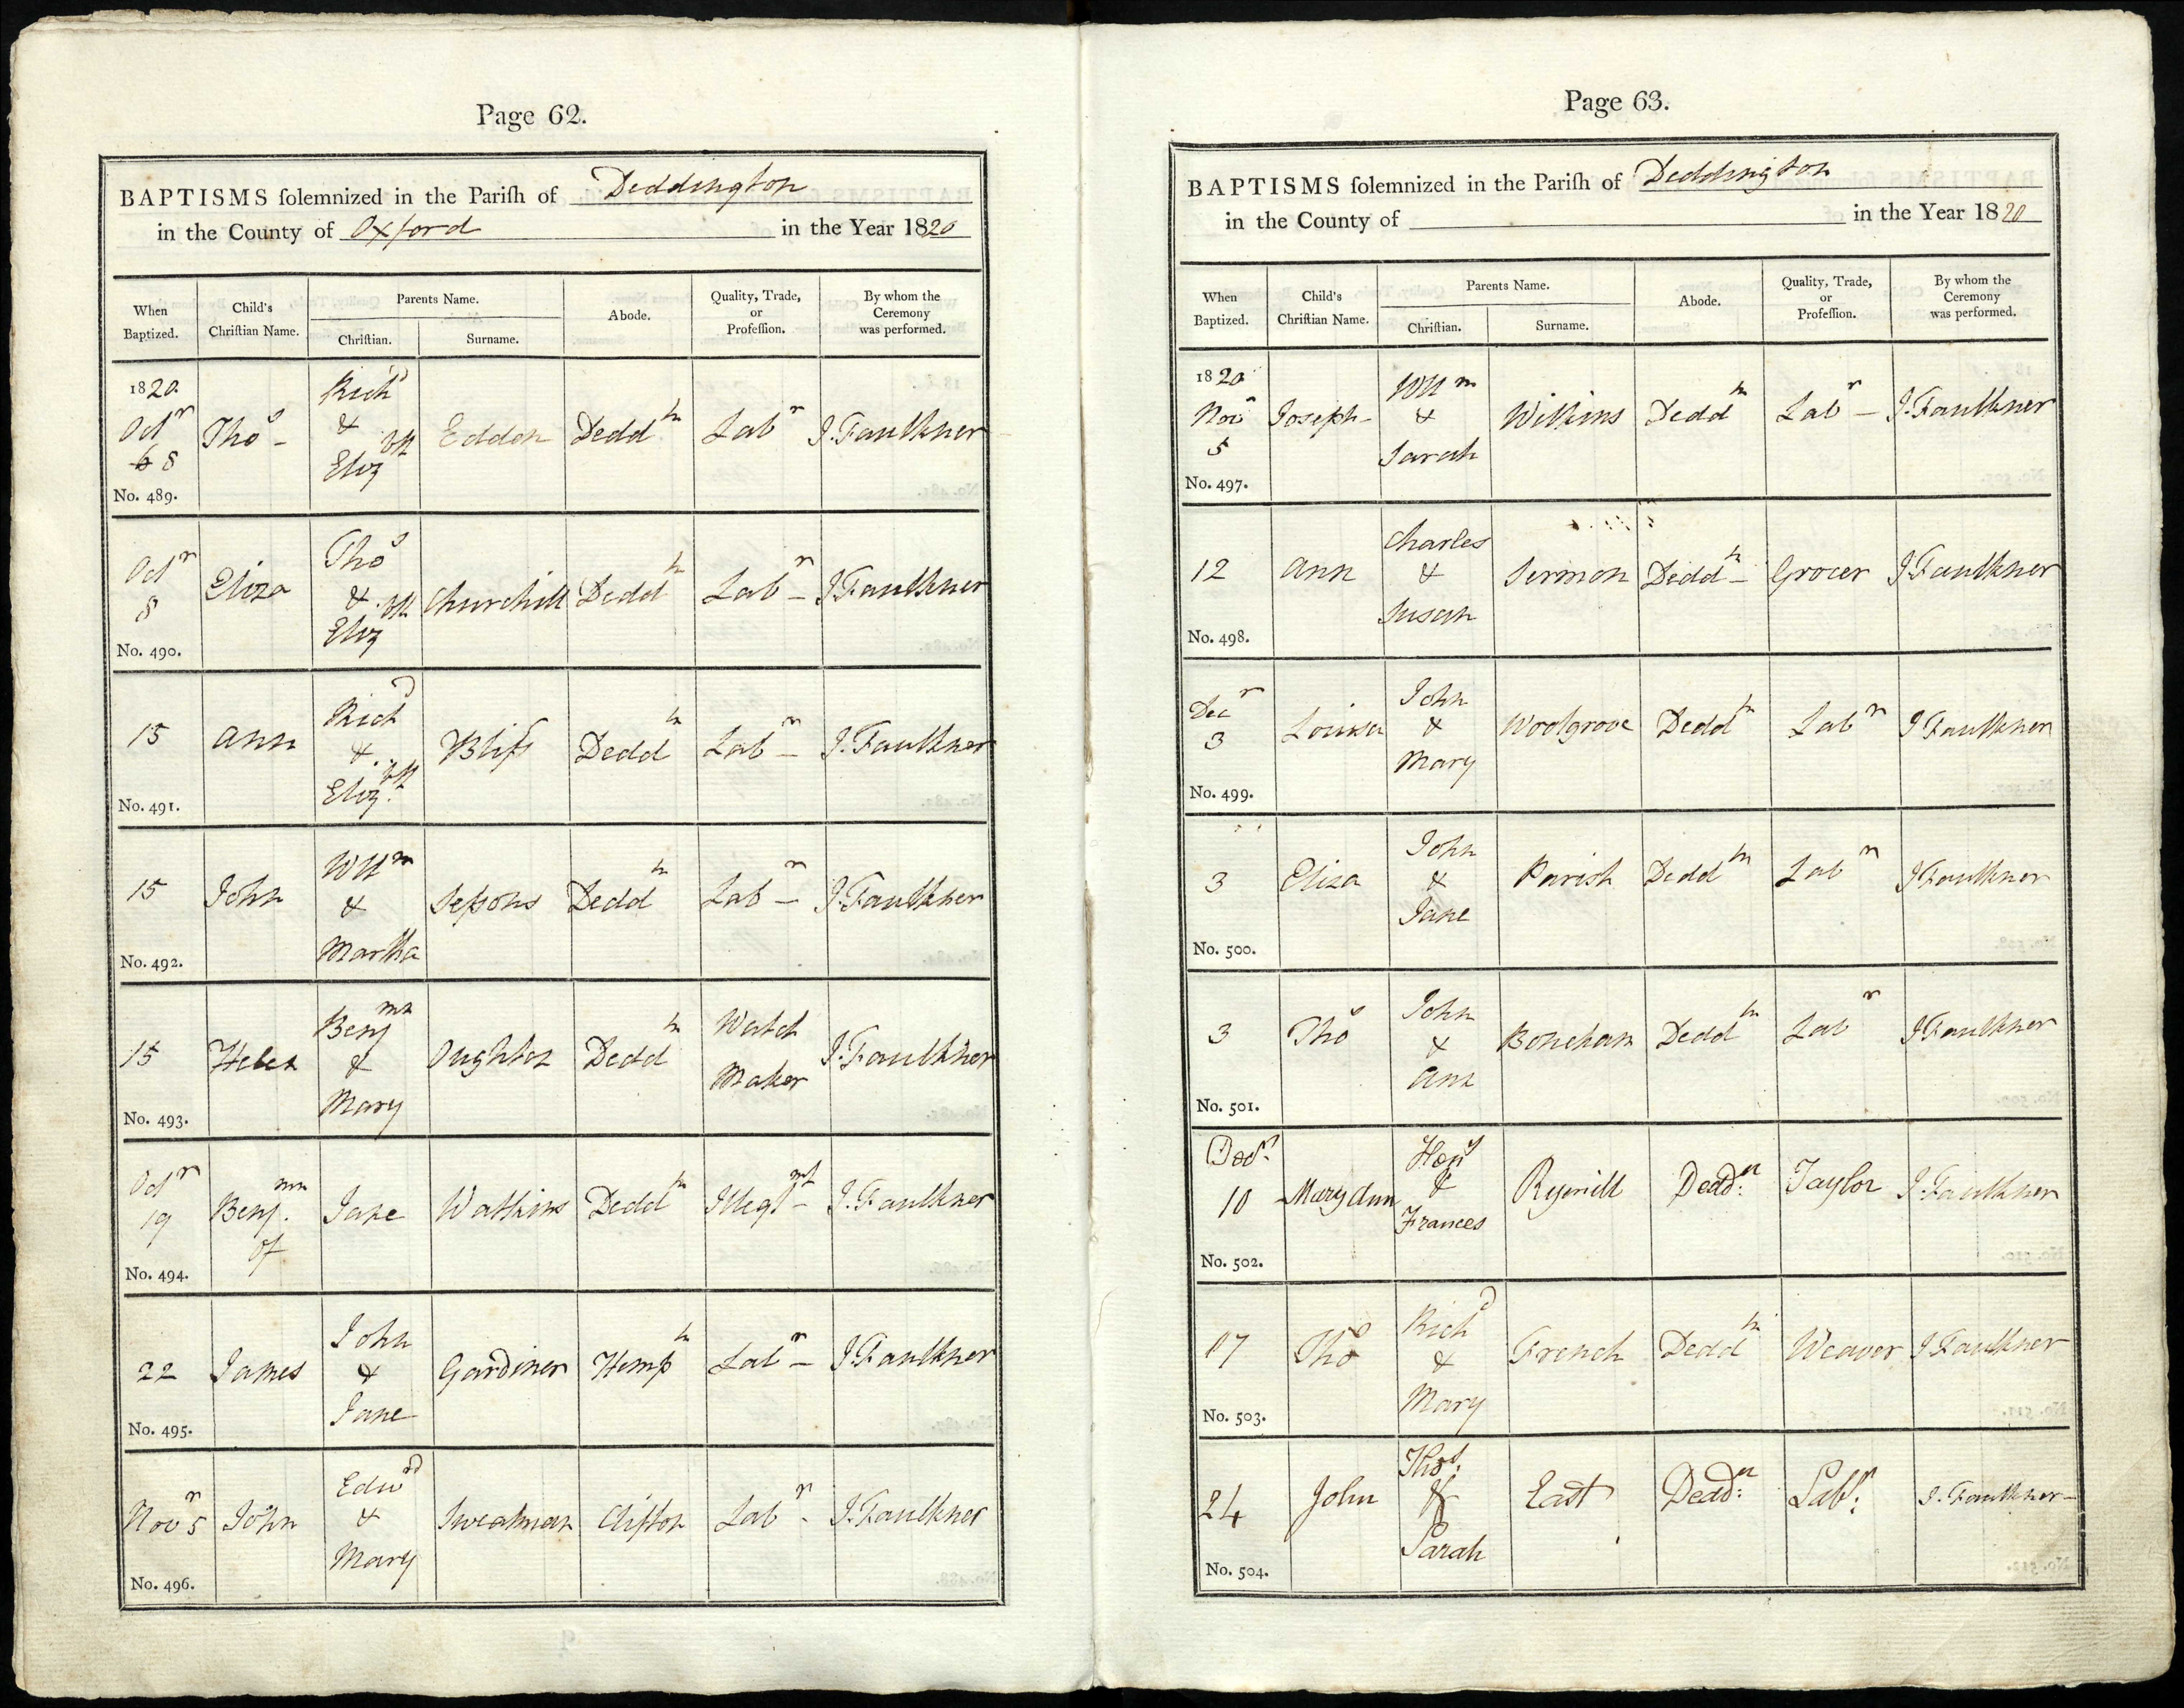 Page 62.
BAPTISMS ſolemnized in the Pariſh of Deddington
in the County of Oxford in the Year 1820
When Baptized. Child's Chriſtian Name. Parents Name. Chriſtian. Surname. Abode. Quality, Trade, or Profeſſion. By whom the Ceremony was performed.
1820. Octr 6 8 Thos - Richd & Elizbth Eddon Deddn Labr J. Faulkner
No. 489.
Octr 8 Eliza Thos & Elizbth Churchill Deddn Labr - J. Faulkner
No. 490.
15 Ann Richd & Elizbth Bliſs Deddn Labr - J. Faulkner
No. 491.
15 John Willm & Martha Seſsons Deddn Labr - J. Faulkner
No. 492.
15 Helen Benjmn & Mary Oughton Deddn Watch Maker J. Faulkner
No. 493.
Octr 19 Benjmn of Jane Watkins Deddn Illegtmt - J. Faulkner
No. 494.
22 James John & Jane Gardiner Hempn Labr - J. Faulkner
No. 495.
Novr 5 John Edwd & Mary Sweatman Clifton Labr - J. Faulkner
No. 496.
Page 63.
BAPTISMS ſolemnized in the Pariſh of Deddington
in the County of in the Year 1820
When Baptized. Child's Chriſtian Name. Parents Name. Chriſtian. Surname. Abode. Quality, Trade, or Profeſſion. By whom the Ceremony was performed.
1820 Novr 5 Joseph - Willm & Sarah Wilkins Deddn Labr - J. Faulkner
No. 497.
12 Ann Charles & Susan Sermon Deddn - Grocer J. Faulkner
No. 498.
Decr 3 Louisa John & Mary Woolgrove Deddn Labr J Faulkner
No. 499.
3 Eliza John & Jane Parish Deddn Labr J Faulkner
No. 500.
3 Thos John & Ann Boneham Deddn Labr J Faulkner
No. 501.
Decr. 10 Mary Ann Heny & Frances Ryemill Deddn: Taylor J. Faulkner
No. 502.
17 Thos Richd & Mary French Deddn Weaver J Faulkner
No. 503.
24 John Thos. & Sarah East Deddn: Labr: J. Faulkner -
No. 504.